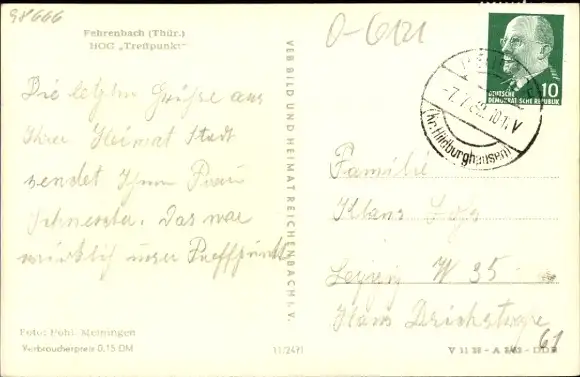 98666
Fehrenbach (Thür.)
HOG „Treffpunkt"
Die letzten Grüße aus
Ihrer Heimat Stadt
sendet Ihnen
Das war
wirklich unser Treffpunkt
Foto: Pohl, Meiningen
Verbraucherpreis 0,15 DM
VEB BILD UND HEIMAT REICHENBACH I. V.
11/2471
0-6121
10
DEUTSCHE
DEMOKRATISCHE REPUBLIK
(Kr. Hildburghausen)
Familie
Klaus
Leipzig W 35
Hans
61
DDR